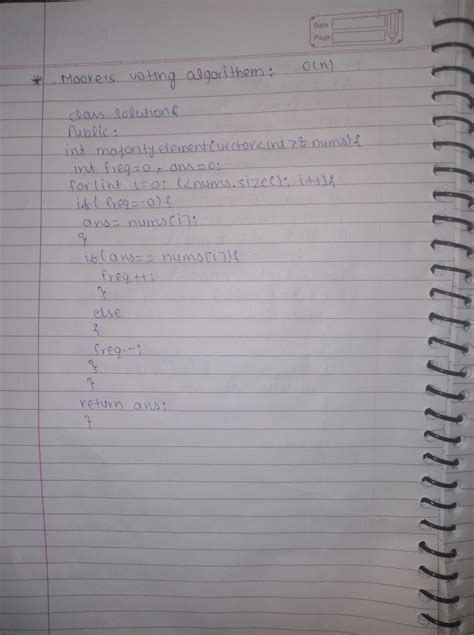 Date
Page
* Moore's voting algorithem: O(n)
class solution{
Public:
int majorityelement(vector<int>& nums){
int freq=0, ans=0;
for(int i=0; i<nums.size(); i++){
if(freq==0){
ans= nums[i];
}
if(ans== nums[i]){
freq++;
}
else
{
freq--;
}
}
return ans;
}